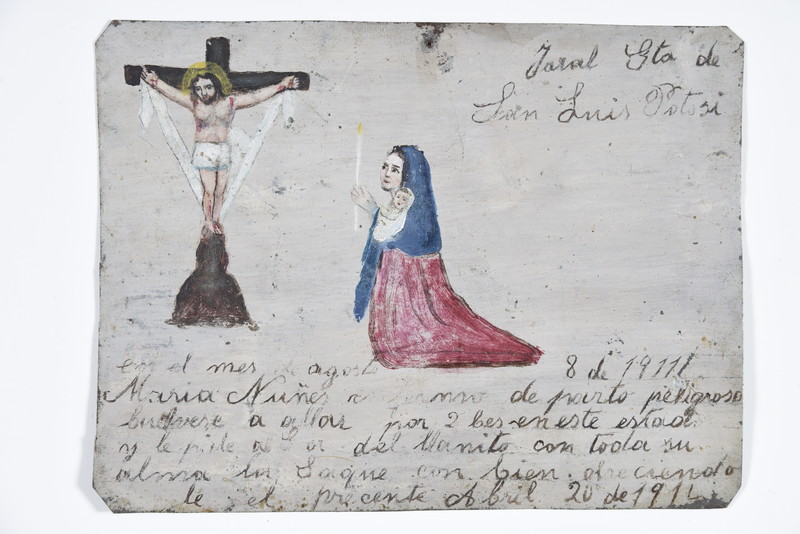 Jaral Gto de
San Luis Potosi
en el mes de agosto 8 de 1911
Maria Nuñes de parto peligroso
buelvese a allar por 2 bes en este estado
y le pide al S or del llanito con toda su
alma la saque con bien ofreciendo
le el precente Abril 20 de 191